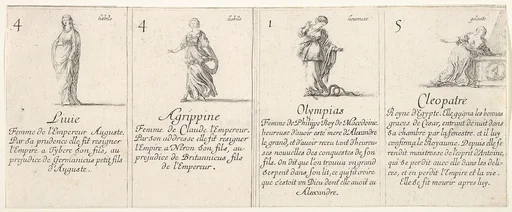 4 habile
Livie
Femme de l'Empereur Auguste.
Par sa prudence elle fit resigner
l'Empire a Tybere son fils, au
prejudice de Germanicus petit fils
d'Auguste.
4 habile
Agrippine
Femme de Claude l'Empereur.
Par son addresse elle fit resigner
l'Empire a Neron son fils, au
prejudice de Britannicus fils
de l'Empereur.
1 heureuse
Olympias
Femme de Philippe Roy de Macedoine
heureuse d'avoir esté mere d'Alexandre
le grand, et d'avoir receu tant d'heureu-
ses nouvelles des conquestes de son
fils. On dit que l'on trouva un grand
serpent dans son lit, ce qui fit croire
que c'estoit un Dieu dont elle avoit eu
Alexandre.
5 galante
Cleopatre
Reyne d'Egypte. Elle gaigna les bonnes
graces de Cesar, entrant de nuit dans
sa chambre par la fenestre, et il luy
confirma le Royaume. Depuis elle se
rendit maistresse de l'esprit d'Antoine,
qui se perdit avec elle dans les deli-
ces, et en perdit l'Empire et la vie.
Elle se fit mourir apres luy.